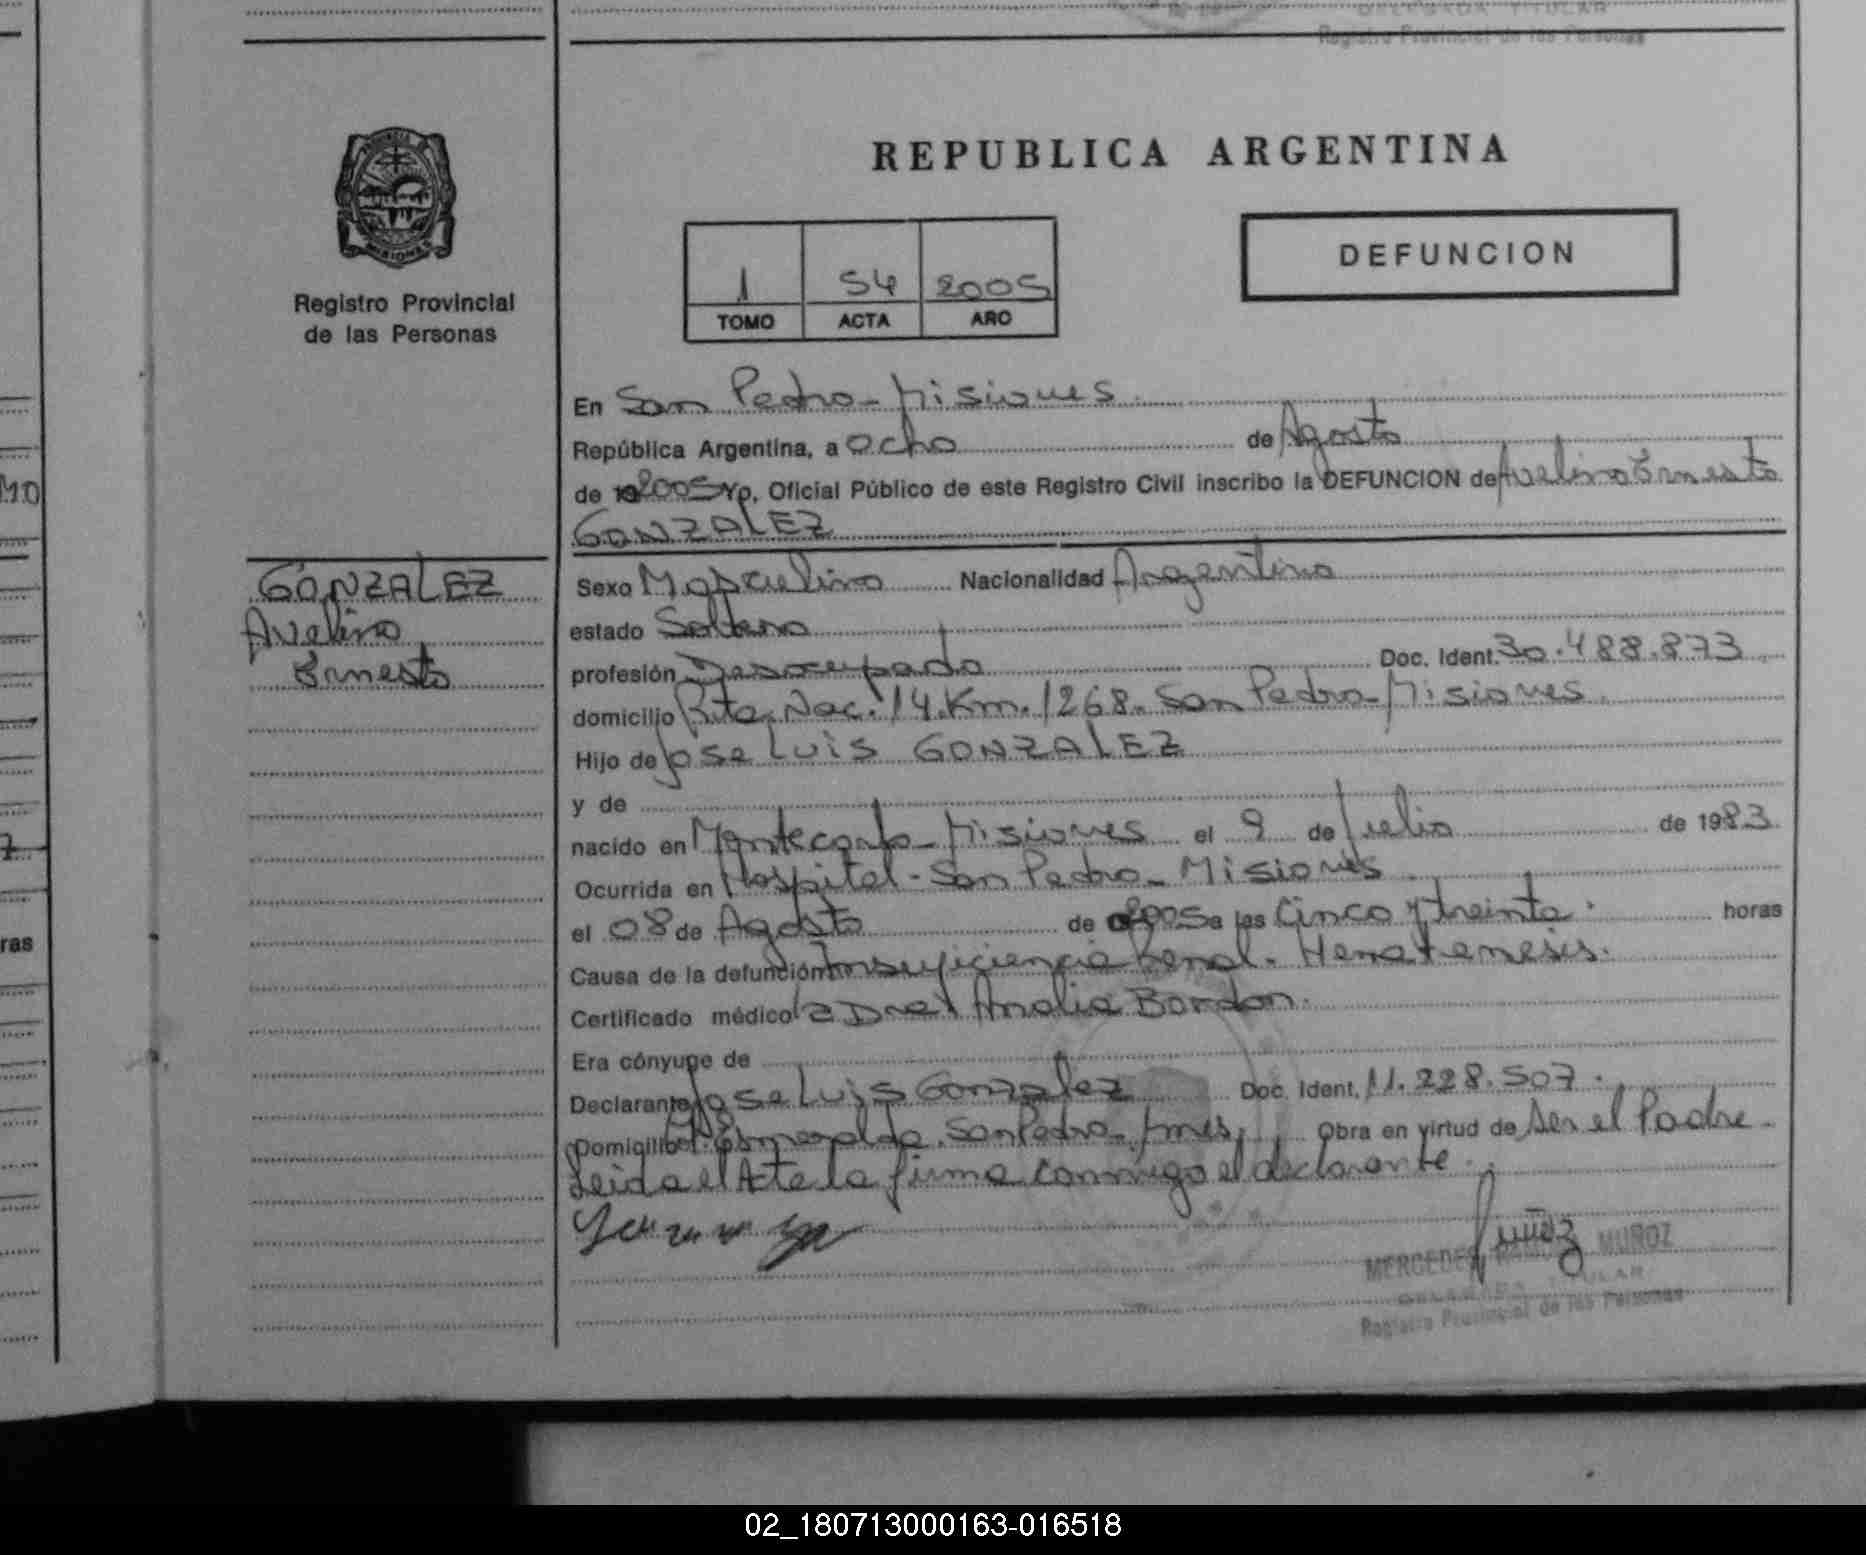 DELEGADA TITULAR
Registro Provincial de las Personas
REPUBLICA ARGENTINA
DEFUNCION
1 54 2005
TOMO ACTA AÑO
Registro Provincial
de las Personas
En San Pedro - Misiones
República Argentina, a Ocho de Agosto
de 2005 yo, Oficial Público de este Registro Civil inscribo la DEFUNCION de Avelino Ernesto
GONZALEZ
GONZALEZ
Avelino
Ernesto
Sexo Masculino Nacionalidad Argentino
estado Soltero
profesión Desocupado Doc. Ident. 30.488.873
domicilio Rta. Nac. 14. Km. 1268. San Pedro - Misiones.
Hijo de Jose Luis GONZALEZ
y de
nacido en Montecarlo - Misiones el 9 de Julio de 1983
Ocurrida en Hospital - San Pedro - Misiones.
el 08 de Agosto de 2005 a las Cinco y treinta. horas
Causa de la defunción Insuficiencia Renal. Hematemesis.
Certificado médico la Dra. Analia Bordon.
Era cónyuge de
Declarante Jose Luis Gonzalez Doc. Ident. 11.228.507.
Domicilio Esmeralda. San Pedro - Mnes. Obra en virtud de ser el Padre.
Leida el Acta la firma conmigo el declarante.
Muñoz
MERCEDES MUÑOZ
DELEGADA TITULAR
Registro Provincial de las Personas
MO
7
ras
02_180713000163-016518